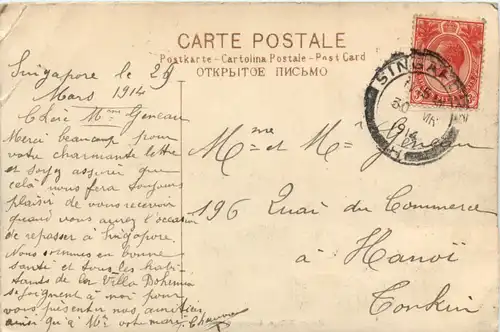 CARTE POSTALE
Postkarte - Cartolina Postale - Post Card
ОТКРЫТОЕ ПИСЬМО
Singapore le 29
Mars 1914
Chère Mme Geneau
Merci beaucoup pour
votre charmante lettre
et soyez assurés que
celà nous fera toujours
plaisir de vous recevoir
quand vous aurez l'occasion
de repasser à Singapore.
Nous sommes en bonne
santé et tous les habi-
tants de la Villa Bohemia
se joignent à moi pour
vous présenter nos amitiés
ainsi qu'à Mr votre mari
Mme et Mr Geneau
196 Quai du Commerce
à Hanoï
Tonkin
SINGAPORE
30 MR
1914